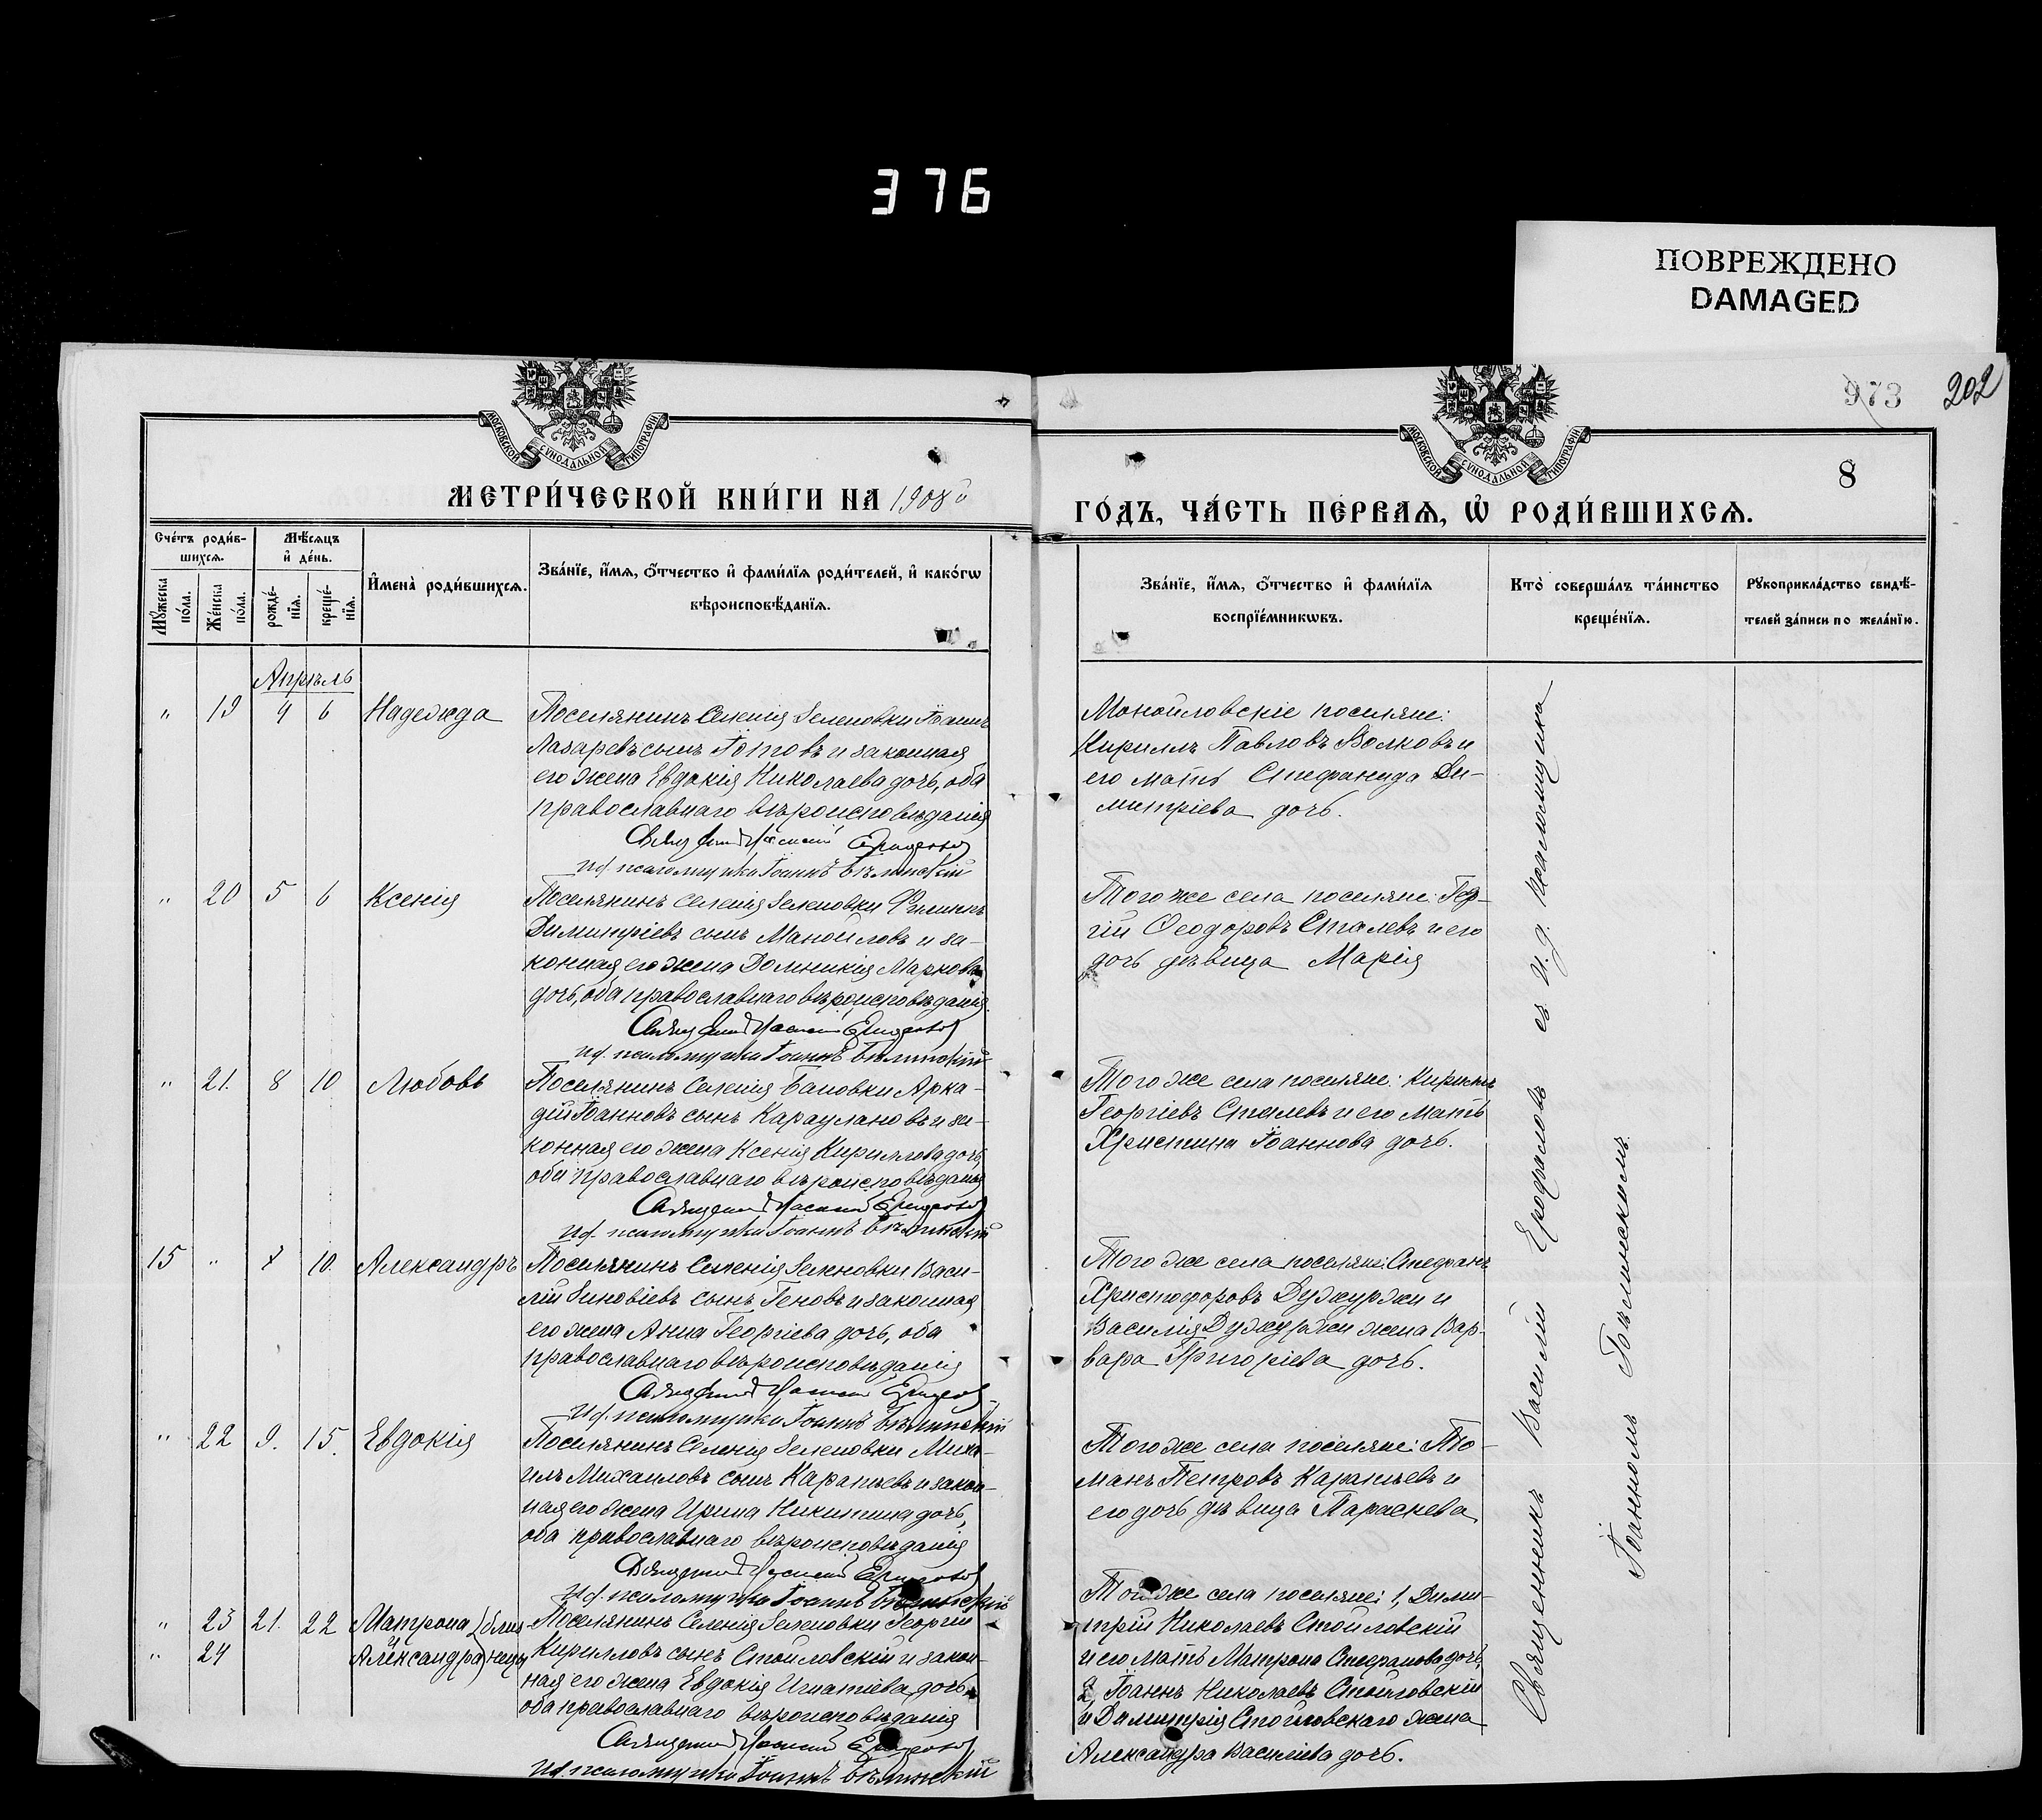 376
ПОВРЕЖДЕНО
DAMAGED
973 202
8
МОСКОВСКОЙ СѴНОДАЛЬНОЙ ТИПОГРАФІИ
МОСКОВСКОЙ СѴНОДАЛЬНОЙ ТИПОГРАФІИ
МЕТРИ́ЧЕСКОЙ КНИ́ГИ НА 1908й
ГО́ДЪ, ЧА́СТЬ ПЕ́РВАѦ, Ѡ҆ РОДИ́ВШИХСѦ.
Сче́тъ роди́в-
шихсѧ.
Мꙋ́жеска по́ла.
Же́нска по́ла.
Мѣ́сѧцъ
и҆ де́нь.
рожде́-нїѧ.
креще́-нїѧ.
И҆мена̀ роди́вшихсѧ.
Зва́нїе, и҆́мѧ, ѻ҆́тчество и҆ фами́лїѧ роди́телей, и҆ како́гѡ
вѣроисповѣ́данїѧ.
Зва́нїе, и҆́мѧ, ѻ҆́тчество и҆ фами́лїѧ
воспрїе́мникѡвъ.
Кто̀ соверша́лъ та́инство
креще́нїѧ.
Рꙋкоприкла́дство свидѣ́-
телей за́писи по жела́нїю.
Апрѣль
" 19 4 6 Надежда
Поселянинъ селенія Зеленовки Іоаннъ
Лазаревъ сынъ Готовъ и законная
его жена Евдокія Николаева дочь, оба
православнаго вѣроисповѣданія
Священникъ Василій Ерофаловъ
И.д. псаломщика Іоаннъ Бѣлинскій
Монойловскіе поселяне:
Кириллъ Павловъ Волковъ и
его мать Стефанида Ди-
митріева дочь.
" 20 5 6 Ксенія
Поселянинъ селенія Зеленовки Филиппъ
Димитріевъ сынъ Манойловъ и за-
конная его жена Домникія Маркова
дочь, оба православнаго вѣроисповѣданія.
Священникъ Василій Ерофаловъ
И.д. псаломщика Іоаннъ Бѣлинскій
Того же села поселяне: Геор-
гій Ѳеодоровъ Сталевъ и его
дочь дѣвица Марія
" 21. 8 10 Любовь
Поселянинъ селенія Бановки Арка-
дій Іоанновъ сынъ Караулановъ и за-
конная его жена Ксенія Кириллова дочь,
оба православнаго вѣроисповѣданія
Священникъ Василій Ерофаловъ
И.д. псаломщика Іоаннъ Бѣлинскій
Того же села поселяне: Кириллъ
Георгіевъ Сталевъ и его мать
Христина Іоаннова дочь.
15 " 10. Александръ
Поселянинъ селенія Зеленовки Васи-
лій Зиновіевъ сынъ Геновъ и законная
его жена Анна Георгіева дочь, оба
православнаго вѣроисповѣданія
Священникъ Василій Ерофаловъ
И.д. псаломщика Іоаннъ Бѣлинскій
Того же села поселяне: Стефанъ
Христофоровъ Дужуржи и
Василія Дужуржи жена Вар-
вара Григоріева дочь.
" 22 9. 15. Евдокія
Поселянинъ селенія Зеленовки Миха-
илъ Михаиловъ сынъ Карапѣевъ и закон-
ная его жена Ирина Никитина дочь,
оба православнаго вѣроисповѣданія
Священникъ Василій Ерофаловъ
И.д. псаломщика Іоаннъ Бѣлинскій
Того же села поселяне:
манъ Петровъ Карапѣевъ и
его дочь дѣвица Параскева
" 23 21. 22 Матрона близ-
" 24 Александра нецы
Поселянинъ селенія Зеленовки Георгій
Кирилловъ сынъ Стойловскій и закон-
ная его жена Евдокія Игнатіева дочь,
оба православнаго вѣроисповѣданія
Священникъ Василій Ерофаловъ
И.д. псаломщика Іоаннъ Бѣлинскій
Той же села поселяне: 1, Дими-
трій Николаевъ Стойловскій
и его мать Матрона Стефанова дочь,
2, Іоаннъ Николаевъ Стойловскій
и Димитрія Стойловскаго жена
Александра Василіева дочь.
Священникъ Василій Ерофаловъ съ и.д. псаломщика
Іоанномъ Бѣлинскимъ